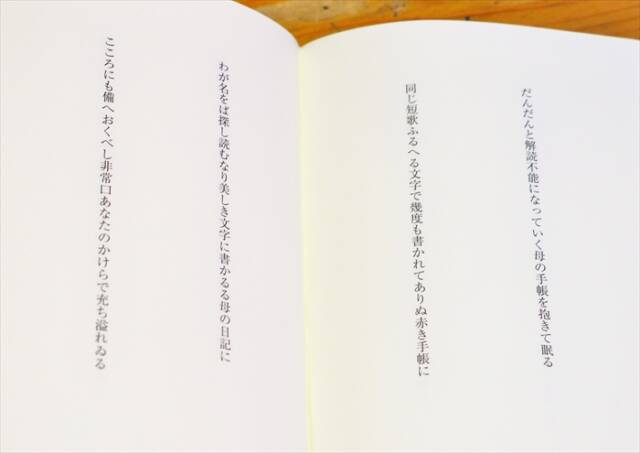 だんだんと解読不能になっていく母の手帳を抱きて眠る
同じ短歌ふるへる文字で幾度も書かれてありぬ赤き手帳に
わが名をば探し読むなり美しき文字に書かるる母の日記に
こころにも備へおくべし非常口あなたのかけらで充ち溢れゐる